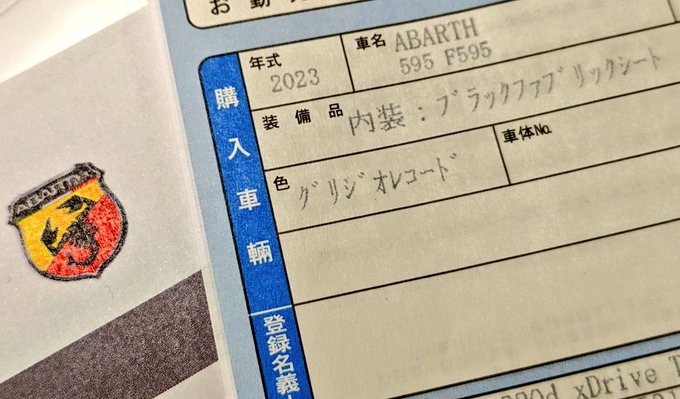 ABARTH
お勤
購入車輌
年式
2023
車名
ABARTH
595 F595
装備品
内装：ブラックファブリックシート
色
グリジオレコード
車体No.
登録名義
xDrive